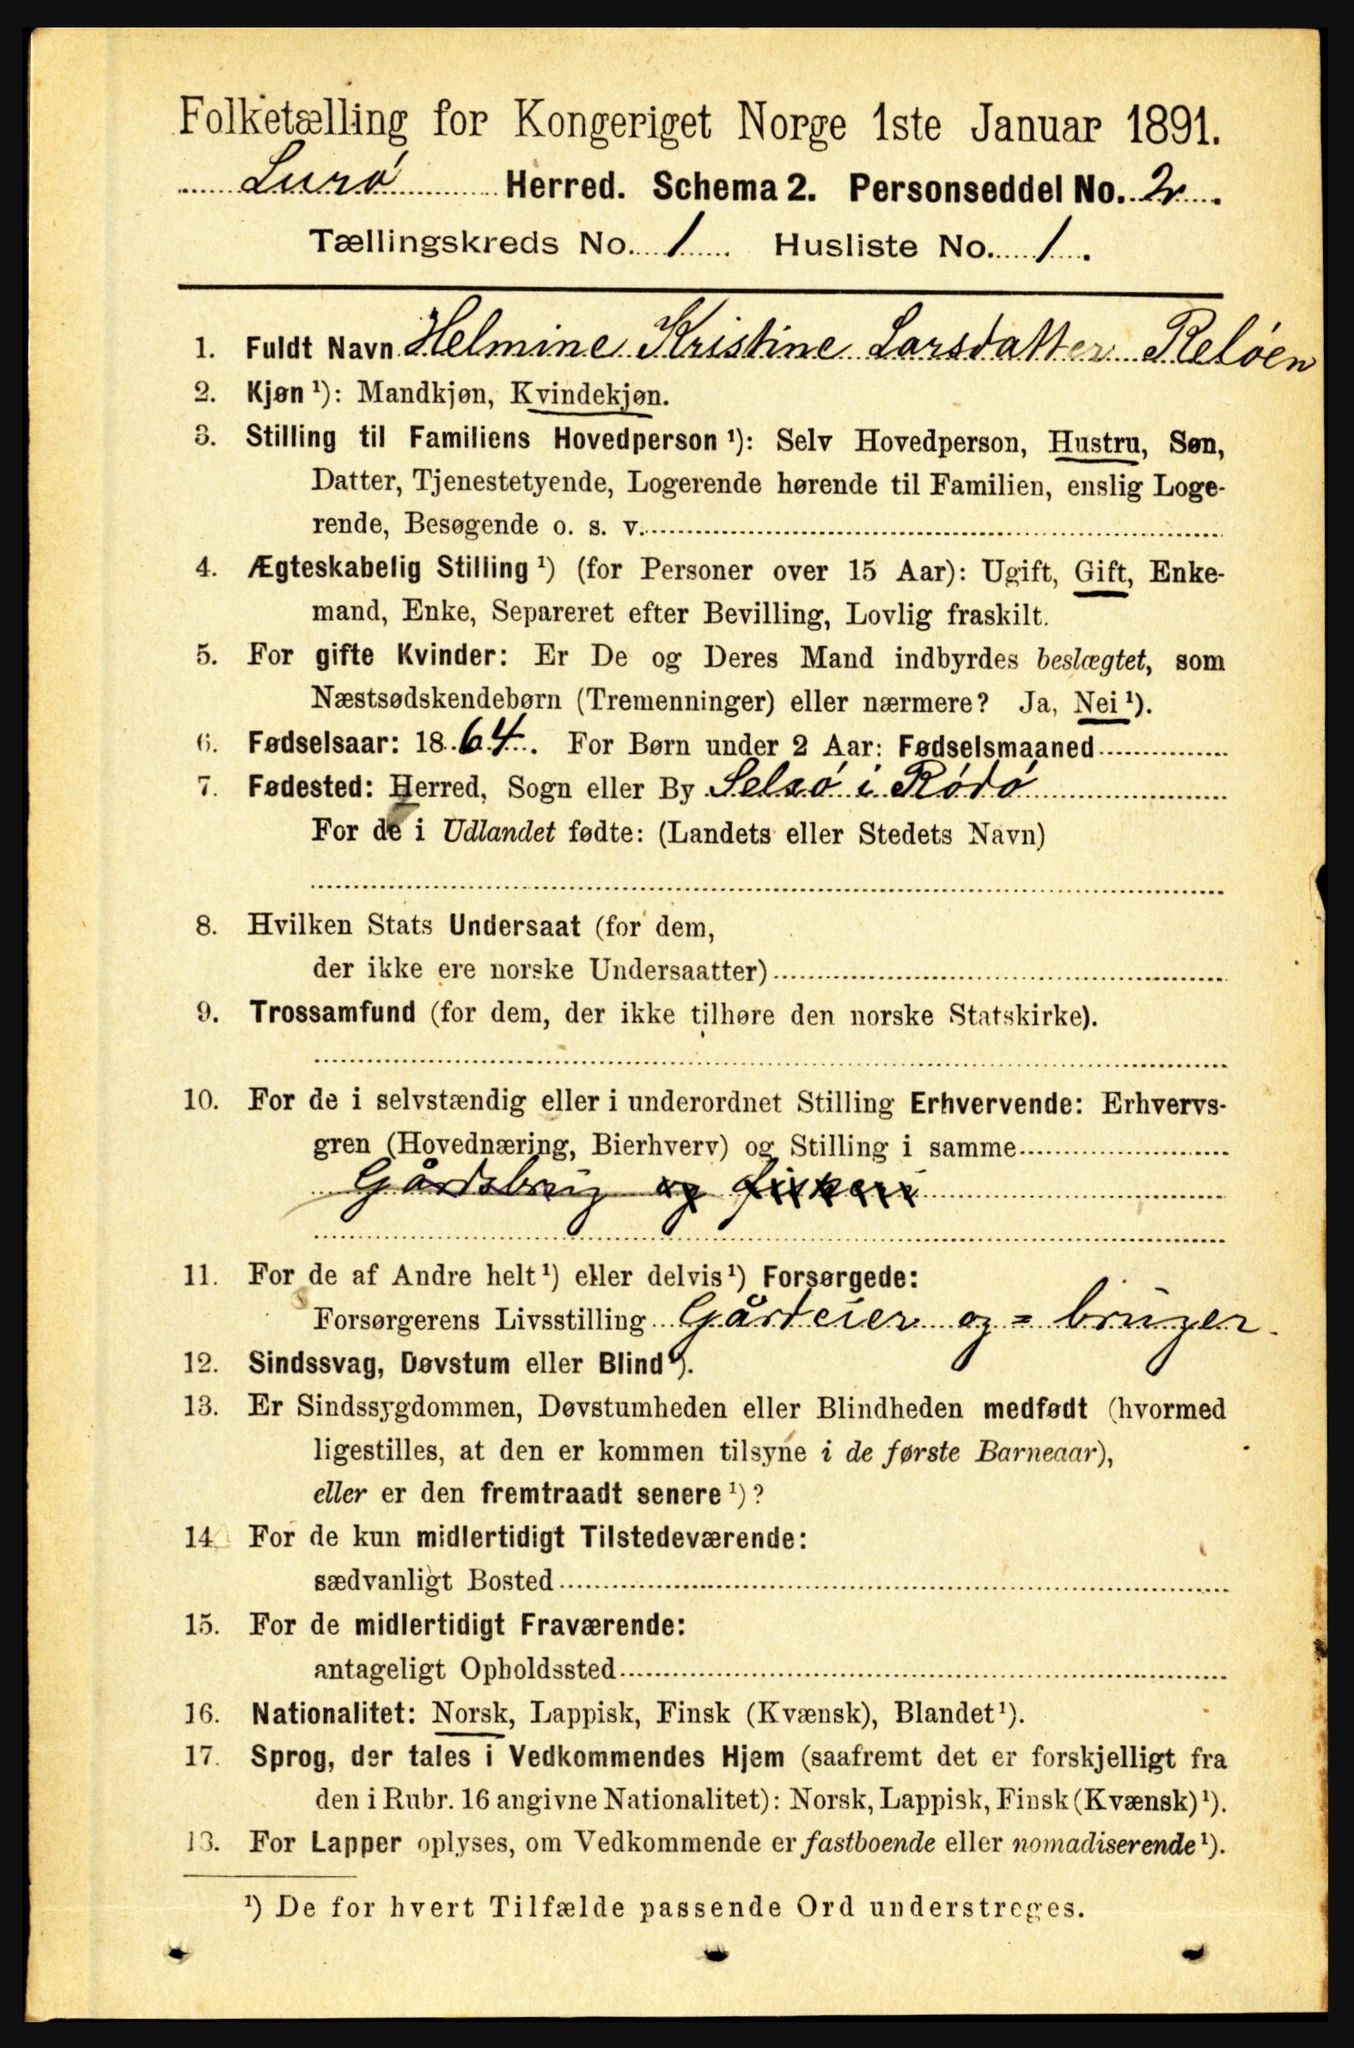 Folketælling for Kongeriget Norge 1ste Januar 1891.
Lurø Herred. Schema 2. Personseddel No. 2.
Tællingskreds No. 1. Husliste No. 1.
1. Fuldt Navn Helmine Kristine Larsdatter Reløen
2. Kjøn ¹): Mandkjøn, Kvindekjøn.
3. Stilling til Familiens Hovedperson ¹): Selv Hovedperson, Hustru, Søn,
Datter, Tjenestetyende, Logerende hørende til Familien, enslig Loge-
rende, Besøgende o. s. v.
4. Ægteskabelig Stilling ¹) (for Personer over 15 Aar): Ugift, Gift, Enke-
mand, Enke, Separeret efter Bevilling, Lovlig fraskilt.
5. For gifte Kvinder: Er De og Deres Mand indbyrdes beslægtet, som
Næstsødskendebørn (Tremenninger) eller nærmere? Ja, Nei ¹).
6. Fødselsaar: 1864. For Børn under 2 Aar: Fødselsmaaned
7. Fødested: Herred, Sogn eller By Selsö i Rödö
For de i Udlandet fødte: (Landets eller Stedets Navn)
8. Hvilken Stats Undersaat (for dem,
der ikke ere norske Undersaatter)
9. Trossamfund (for dem, der ikke tilhøre den norske Statskirke).
10. For de i selvstændig eller i underordnet Stilling Erhvervende: Erhvervs-
gren (Hovednæring, Bierhverv) og Stilling i samme
Gårdsbrug og fiskeri
11. For de af Andre helt ¹) eller delvis ¹) Forsørgede:
Forsørgerens Livsstilling Gårdeier og = bruger.
12. Sindssvag, Døvstum eller Blind ¹).
13. Er Sindssygdommen, Døvstumheden eller Blindheden medfødt (hvormed
ligestilles, at den er kommen tilsyne i de første Barneaar),
eller er den fremtraadt senere ¹)?
14. For de kun midlertidigt Tilstedeværende:
sædvanligt Bosted
15. For de midlertidigt Fraværende:
antageligt Opholdssted
16. Nationalitet: Norsk, Lappisk, Finsk (Kvænsk), Blandet ¹).
17. Sprog, der tales i Vedkommendes Hjem (saafremt det er forskjelligt fra
den i Rubr. 16 angivne Nationalitet): Norsk, Lappisk, Finsk (Kvænsk) ¹).
18. For Lapper oplyses, om Vedkommende er fastboende eller nomadiserende ¹).
¹) De for hvert Tilfælde passende Ord understreges.